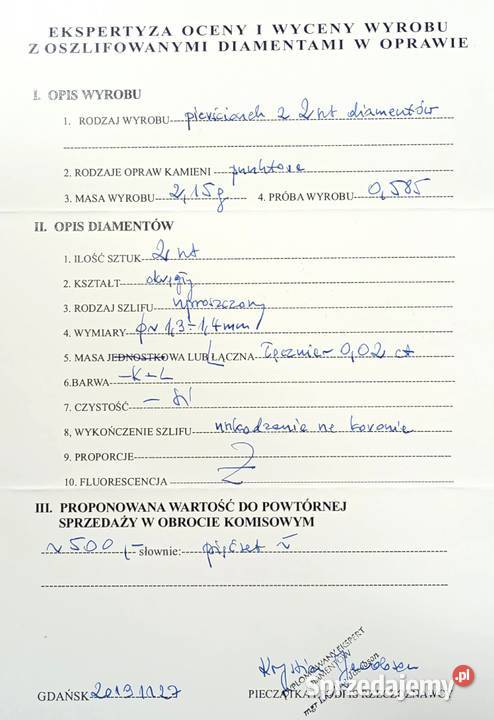 EKSPERTYZA OCENY I WYCENY WYROBU
Z OSZLIFOWANYMI DIAMENTAMI W OPRAWIE
I. OPIS WYROBU
1. RODZAJ WYROBU pierścionek z 2 szt diamentów
2. RODZAJE OPRAW KAMIENI punktowe
3. MASA WYROBU 2,15g 4. PRÓBA WYROBU 0,585
II. OPIS DIAMENTÓW
1. ILOŚĆ SZTUK 2 szt
2. KSZTAŁT okrągły
3. RODZAJ SZLIFU uproszczony
4. WYMIARY φ~1,3÷1,4mm
5. MASA JEDNOSTKOWA LUB ŁĄCZNA łącznie 0,02 ct
6.BARWA –K÷L
7. CZYSTOŚĆ –
8, WYKOŃCZENIE SZLIFU uszkodzenie na koronie
9. PROPORCJE
10. FLUORESCENCJA
III. PROPONOWANA WARTOŚĆ DO POWTÓRNEJ
SPRZEDAŻY W OBROCIE KOMISOWYM
~500,– słownie: pięćset zł
DYPLOMOWANY EKSPERT
DIAMENTÓW
mgr
GDAŃSK 2019.11.27 PIECZĄTKA I PODPIS RZECZOZNAWCY
Sprzedajemy.pl